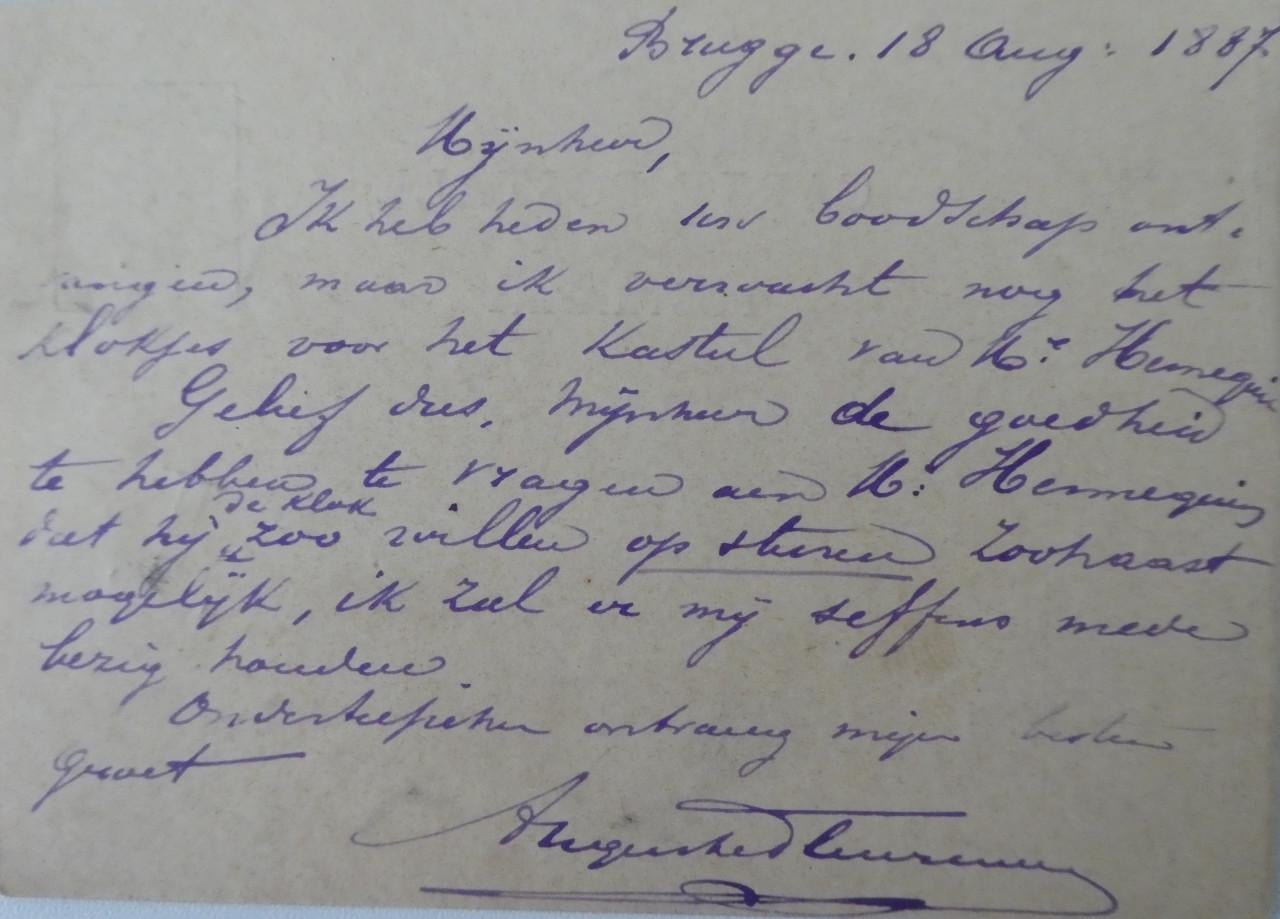 Brugge. 18 Aug: 1887.
Mijnheer,
Ik heb heden uw boodschap ont-
angen, maar ik verwacht nog het
klokjes voor het Kasteel van Mr Hennequin
Gelief dus, Mijnheer de goedheid
te hebben te vragen aen Mr: Hennequin
de klok
dat hij zoo willen op sturen zoohaast
mogelijk, ik zal er mij seffens mede
bezig houden.
ontvang mijn besten
groet
Auguste